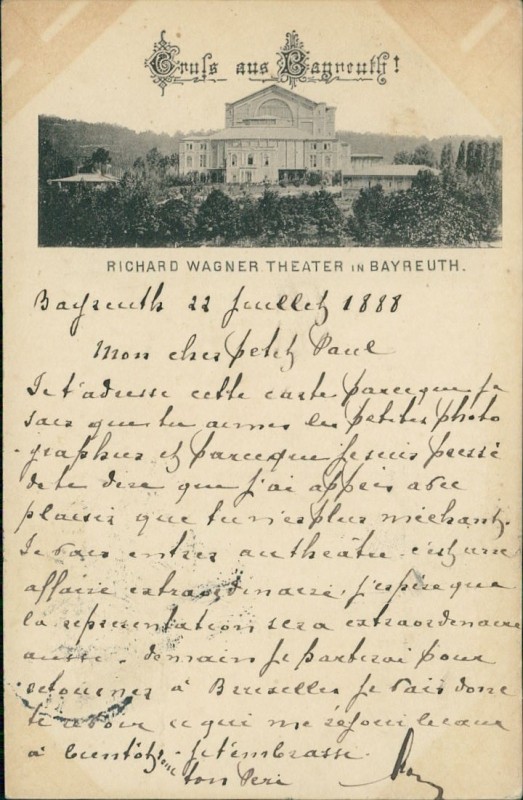 Gruss aus Bayreuth!
RICHARD WAGNER THEATER IN BAYREUTH.
Bayreuth 22 Juillet 1888
Mon cher petit Paul
Je t'adresse cette carte parceque je
sais que tu aimes les petites photo
-graphies et parceque je suis pressé
de te dire que j'ai appris avec
plaisir que tu n'es plus méchant.
Je vais entrer au théâtre. c'est une
affaire extraordinaire, j'espère que
la représentation sera extraordinaire
aussi. demain je partirai pour
retourner à Bruxelles je vais donc
te revoir ce qui me réjouit beaucoup
à bientôt donc je t'embrasse.
ton Père